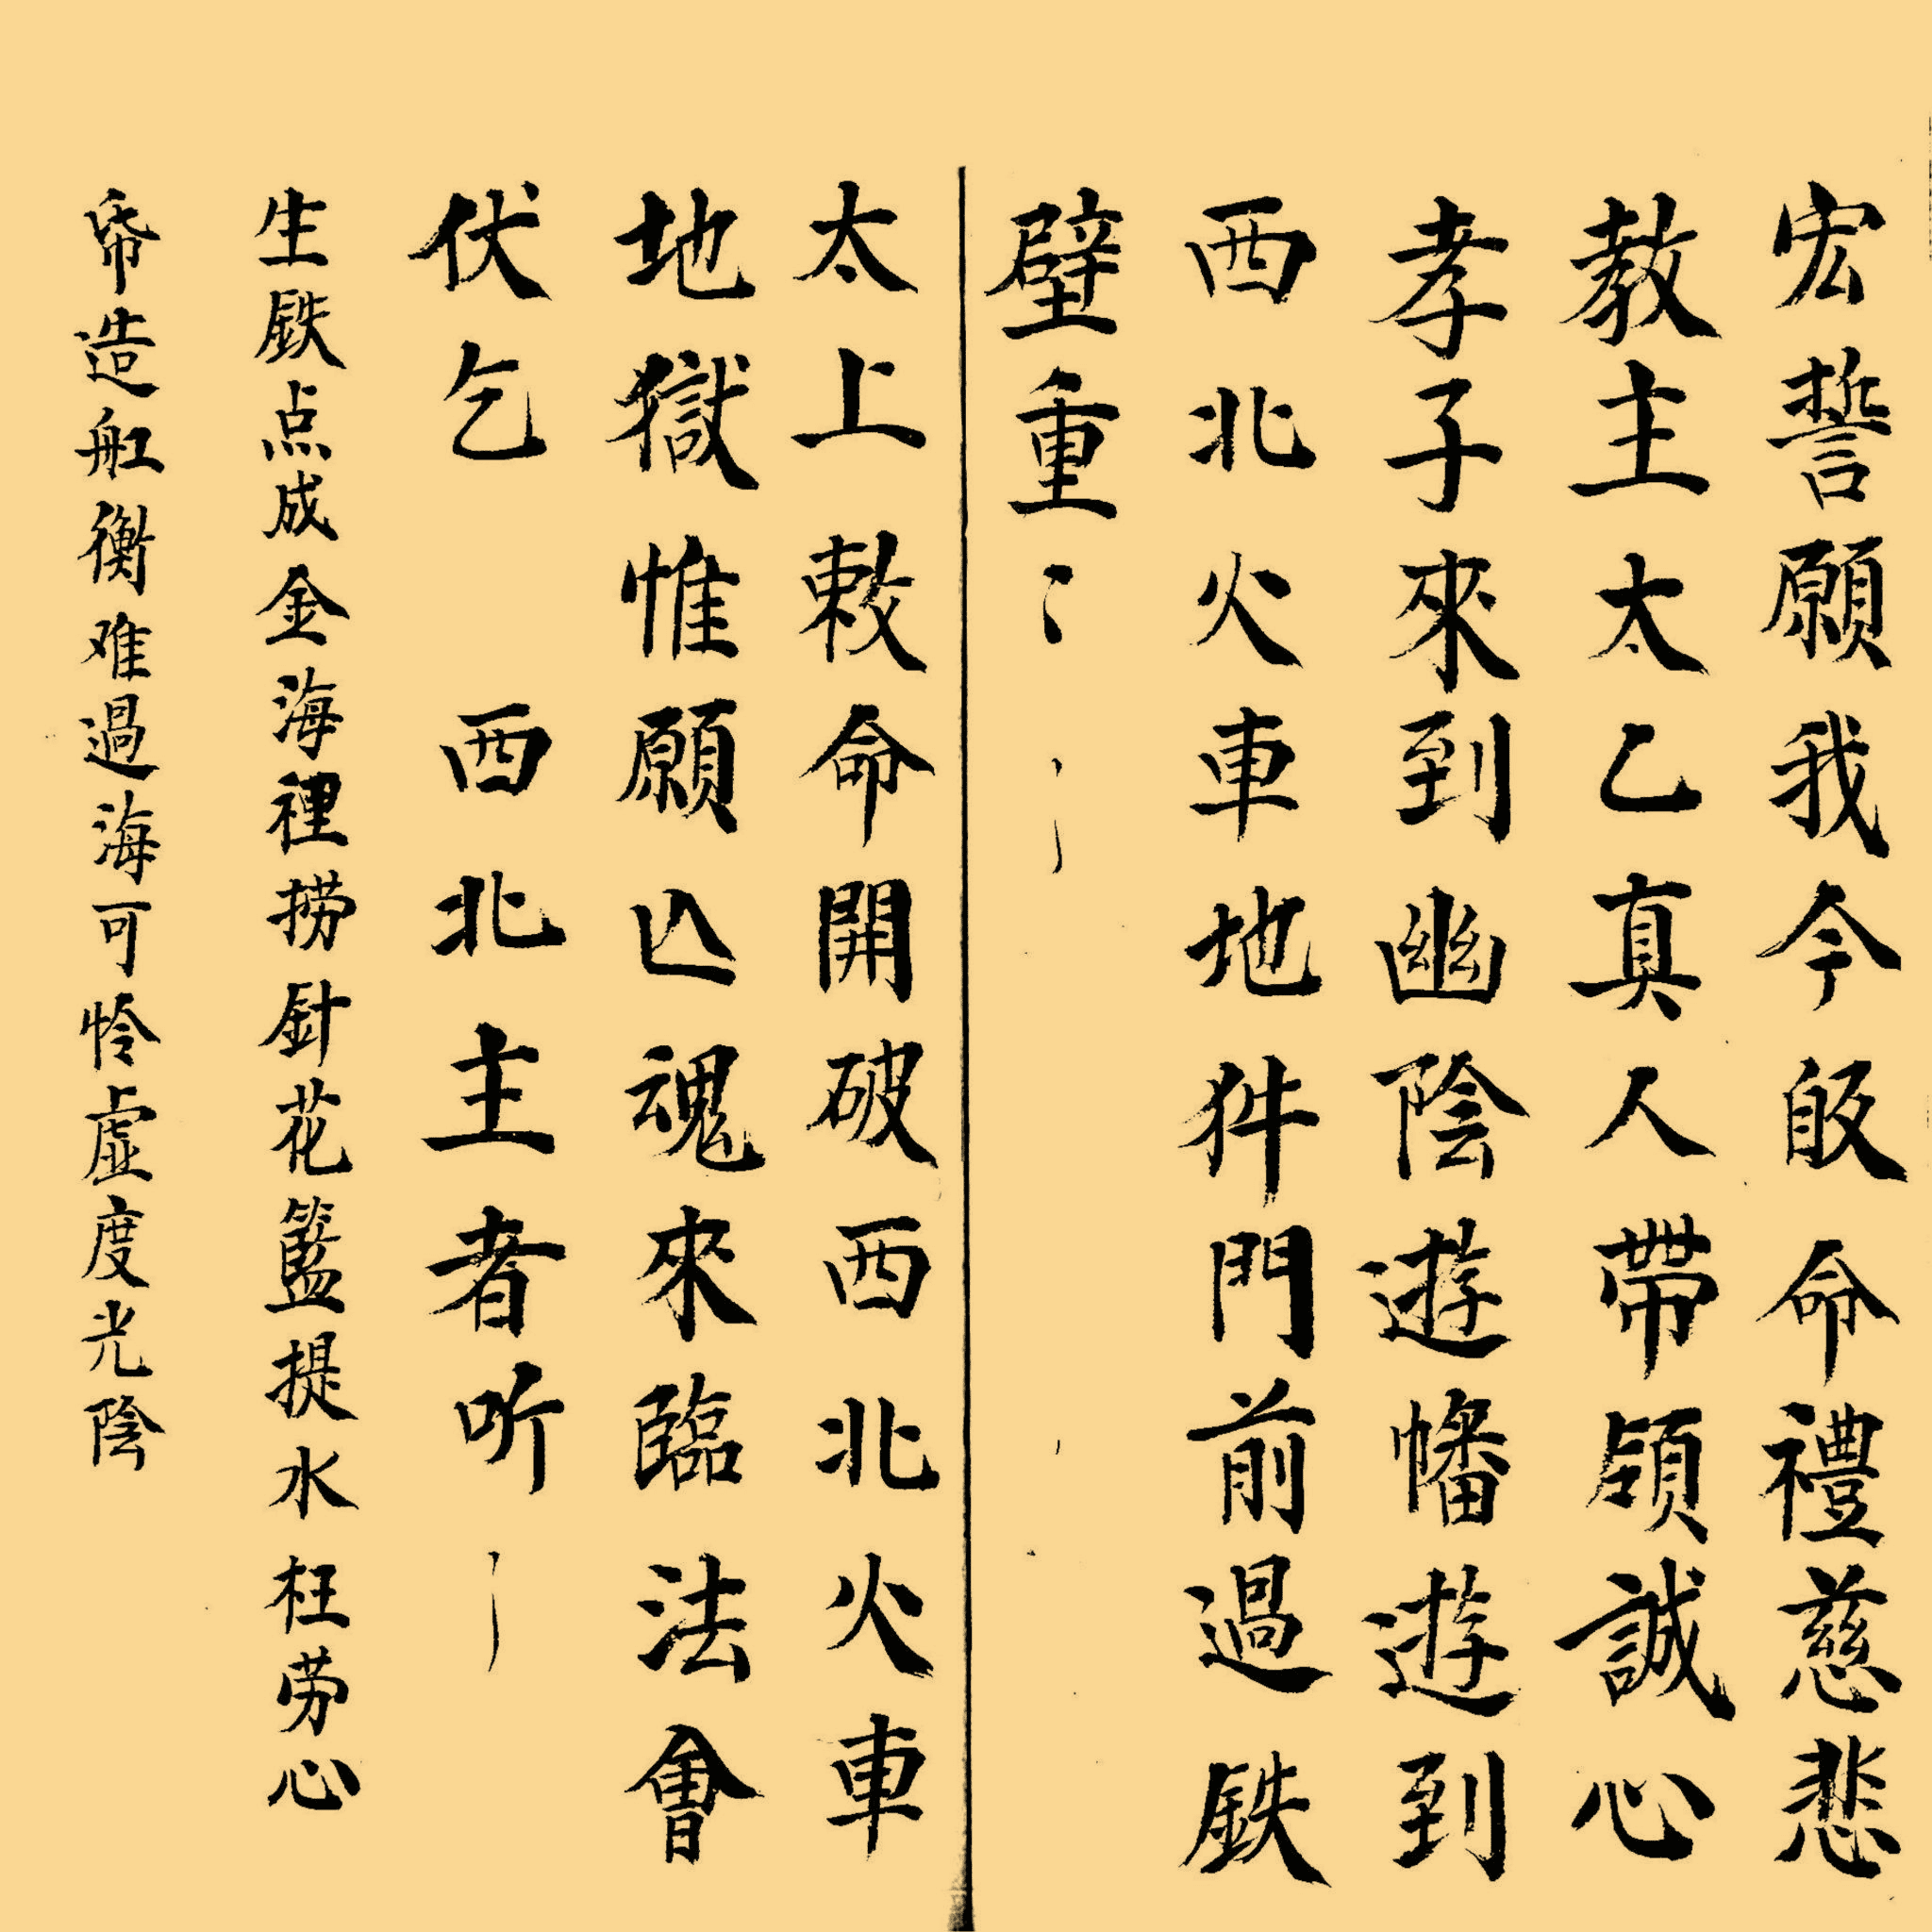 宏誓願我今皈命禮慈悲
教主太乙真人帶領誠心
孝子來到幽陰遊幡遊到
西北火車地門前過鉄
壁重〻
太上敕命開破西北火車
地獄惟願亾魂來臨法會
伏乞 西北主者听
生鉄点成金海裡捞針花籃提水枉劳心
帋造舡衡难過海可怜虚度光陰